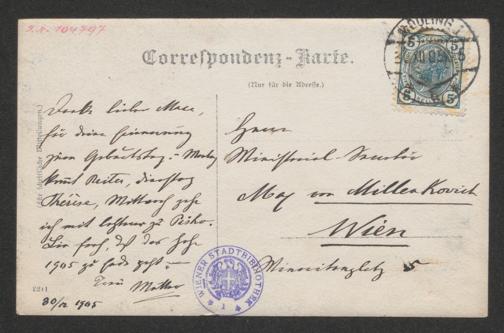 J.N. 104797
Correspondenz-Karte.
(Nur für die Adresse.)
MÖDLING
5 5
5 5
Danke lieber Max,
für deine Erinnerung
zum Geburtstag. – Montag
kommt Reiter, Dienstag
Therese, Mittwoch gehe
ich mit
froh, daß das Jahr
1905 zu Ende geht –
Dein
30/12 1905
Herrn
Ministerial Secretär
Max von Millenkovich
Wien
Minoritenplatz 5
WIENER STADTBIBLIOTHEK